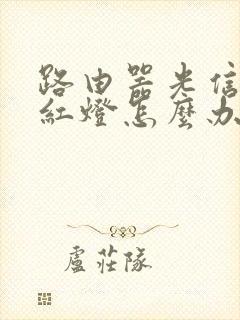 路由器光信
紅燈怎麼办
盧莊隊